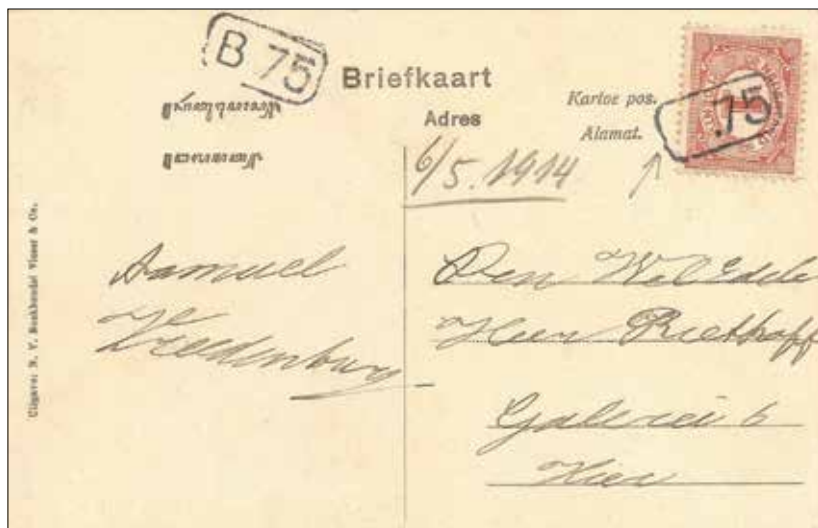 B 75
Briefkaart
Kartoe pos.
Adres
Alamat.
.75
6/5.1914
Uitgave: N. V. Boekhandel Visser & Co.
Samuel
Vreedenburg
Den WelEdele
Heer Riethoff
Galerei 6
Hier